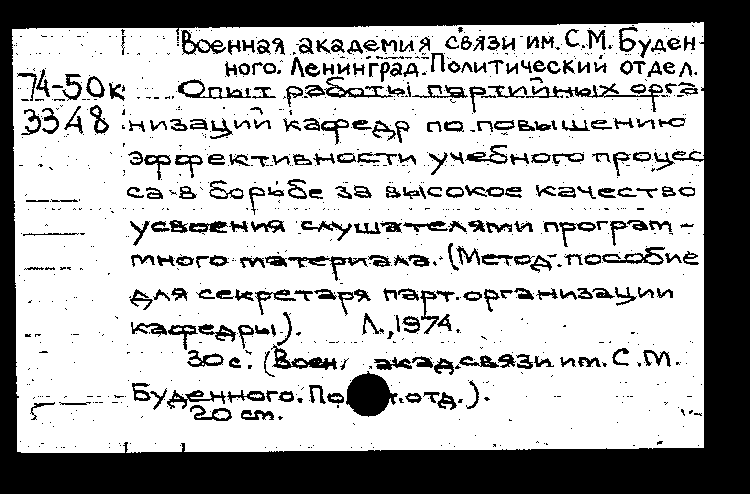 Военная академия связи им. С.М. Буден-
ного. Ленинград. Политический отдел.
74-50к Опыт работы партийных орга-
3348 низаций кафедр по повышению
эффективности учебного процес
са в борьбе за высокое качество
усвоения слушателями програм-
много материала. (Метод. пособие
для секретаря парт. организации
кафедры). Л., 1974.
30 с. (Воен. акад. связи им. С.М.
Буденного. отд.).
20 cm.